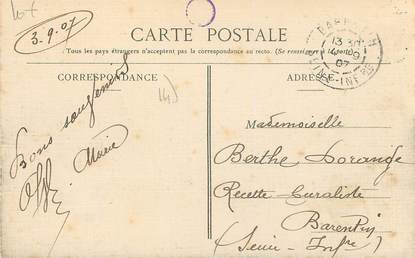 3.9.07
CARTE POSTALE
Tous les pays étrangers n'acceptent pas la correspondance au recto. (Se renseigner à la poste)
CORRESPONDANCE
ADRESSE
13 30
4-9
07
Bons souvenirs
Marie
Mademoiselle
Berthe Lorange
Recette Buraliste
Barentin
(Seine-Infre)